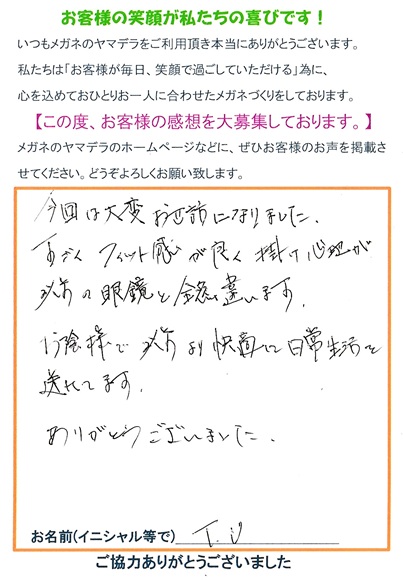 お客様の笑顔が私たちの喜びです！
いつもメガネのヤマデラをご利用頂き本当にありがとうございます。
私たちは「お客様が毎日、笑顔で過ごしていただける」為に、
心を込めておひとりお一人に合わせたメガネづくりをしております。
【この度、お客様の感想を大募集しております。】
メガネのヤマデラのホームページなどに、ぜひお客様のお声を掲載さ
せてください。どうぞよろしくお願い致します。
今回は大変お世話になりました。
すごく フィット感が良く 掛け心地が
以前の眼鏡と全然違います。
お陰様で 以前より快適に日常生活を
送れてます。
ありがとうございました。
お名前(イニシャル等で) T.U
ご協力ありがとうございました